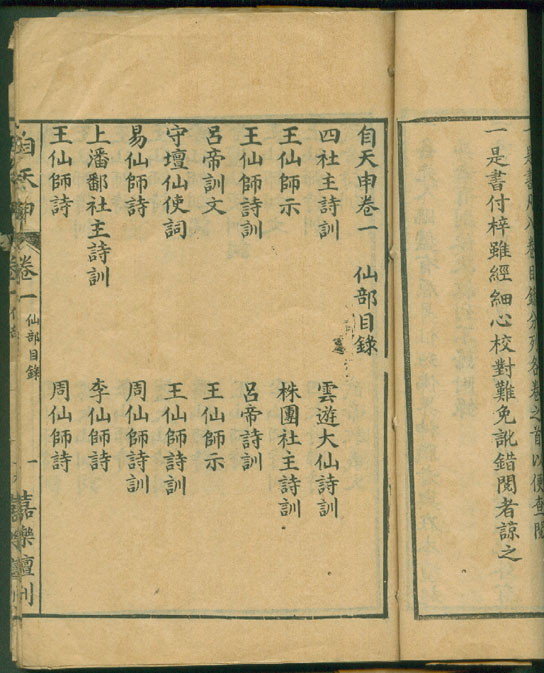 一是書付梓雖經細心校對難免訛錯閱者諒之
自天申卷一 仙部目錄
四社主詩訓 雲遊大仙詩訓
王仙師示 株團社主詩訓
王仙師詩訓 呂帝詩訓
呂帝訓文 王仙師示
守壇仙使詞 王仙師詩訓
易仙師詩 周仙師詩訓
上潘鄱社主詩訓 李仙師詩
王仙師詩 周仙師詩
自天申 卷一 仙部目錄 一 嘉樂壇刊